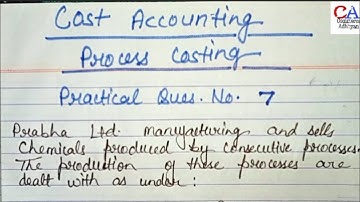 Cost Accounting
CA
Process Costing
Practical Ques. No. 7
Prabha Ltd. manufacturing and sells
Chemicals produced by consecutive processes.
The production of these processes are
dealt with as under :